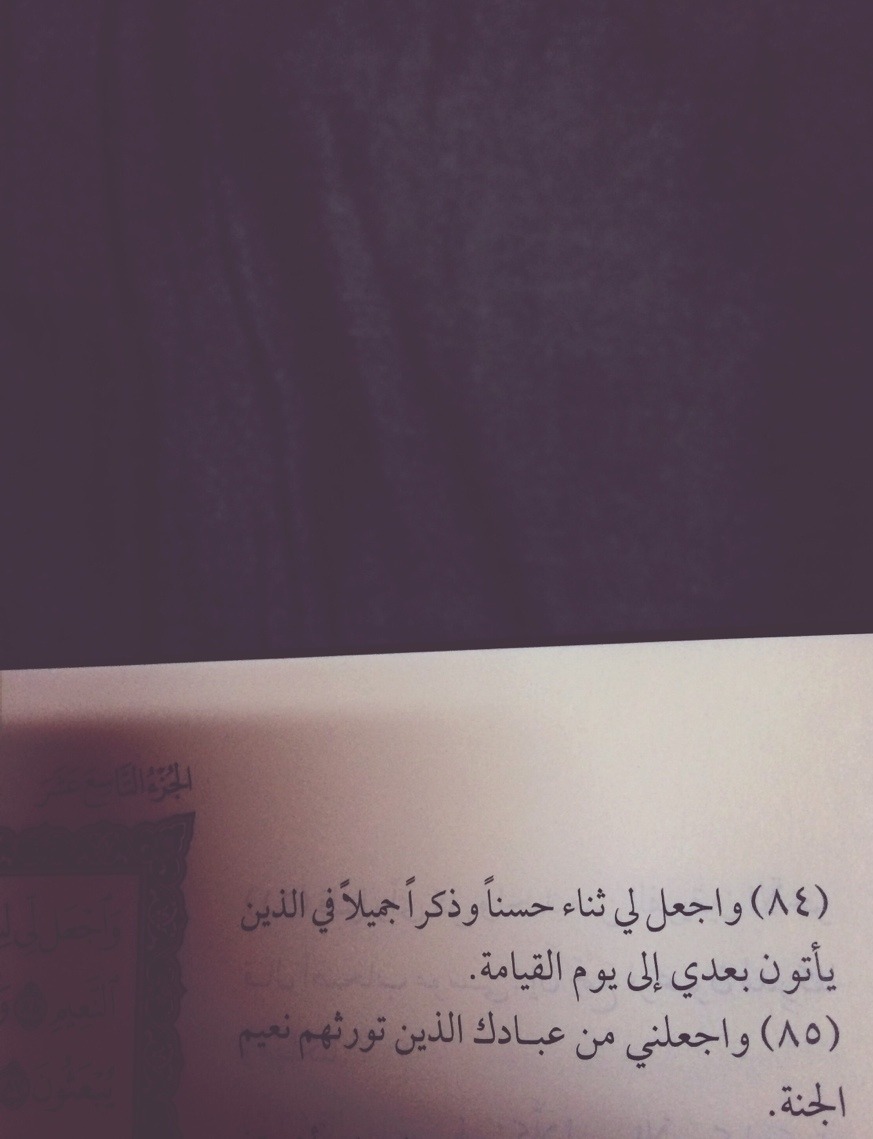 الجزء التاسع عشر
(٨٤) واجعل لي ثناء حسناً وذكراً جميلاً في الذين
يأتون بعدي إلى يوم القيامة.
(٨٥) واجعلني من عبادك الذين تورثهم نعيم
الجنة.